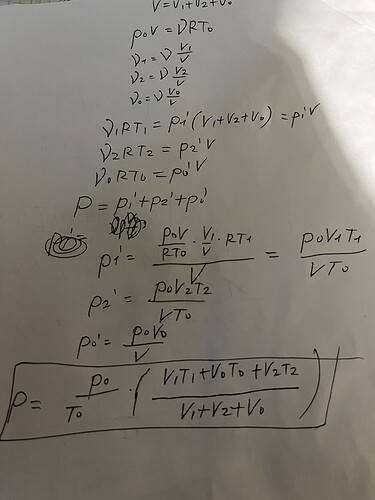 V=V1+V2+V0
p0V=νRT0
ν1=ν V1/V
ν2=ν V2/V
ν0=ν V0/V
ν1RT1=p1'(V1+V2+V0)=p1'V
ν2RT2=p2'V
ν0RT0=p0'V
p=p1'+p2'+p0'
p1'= (p0V/RT0 · V1/V · RT1)/V = p0V1T1/VT0
p2'= p0V2T2/VT0
p0'= p0V0/V
p= p0/T0 · ( (V1T1+V0T0+V2T2)/(V1+V2+V0) )